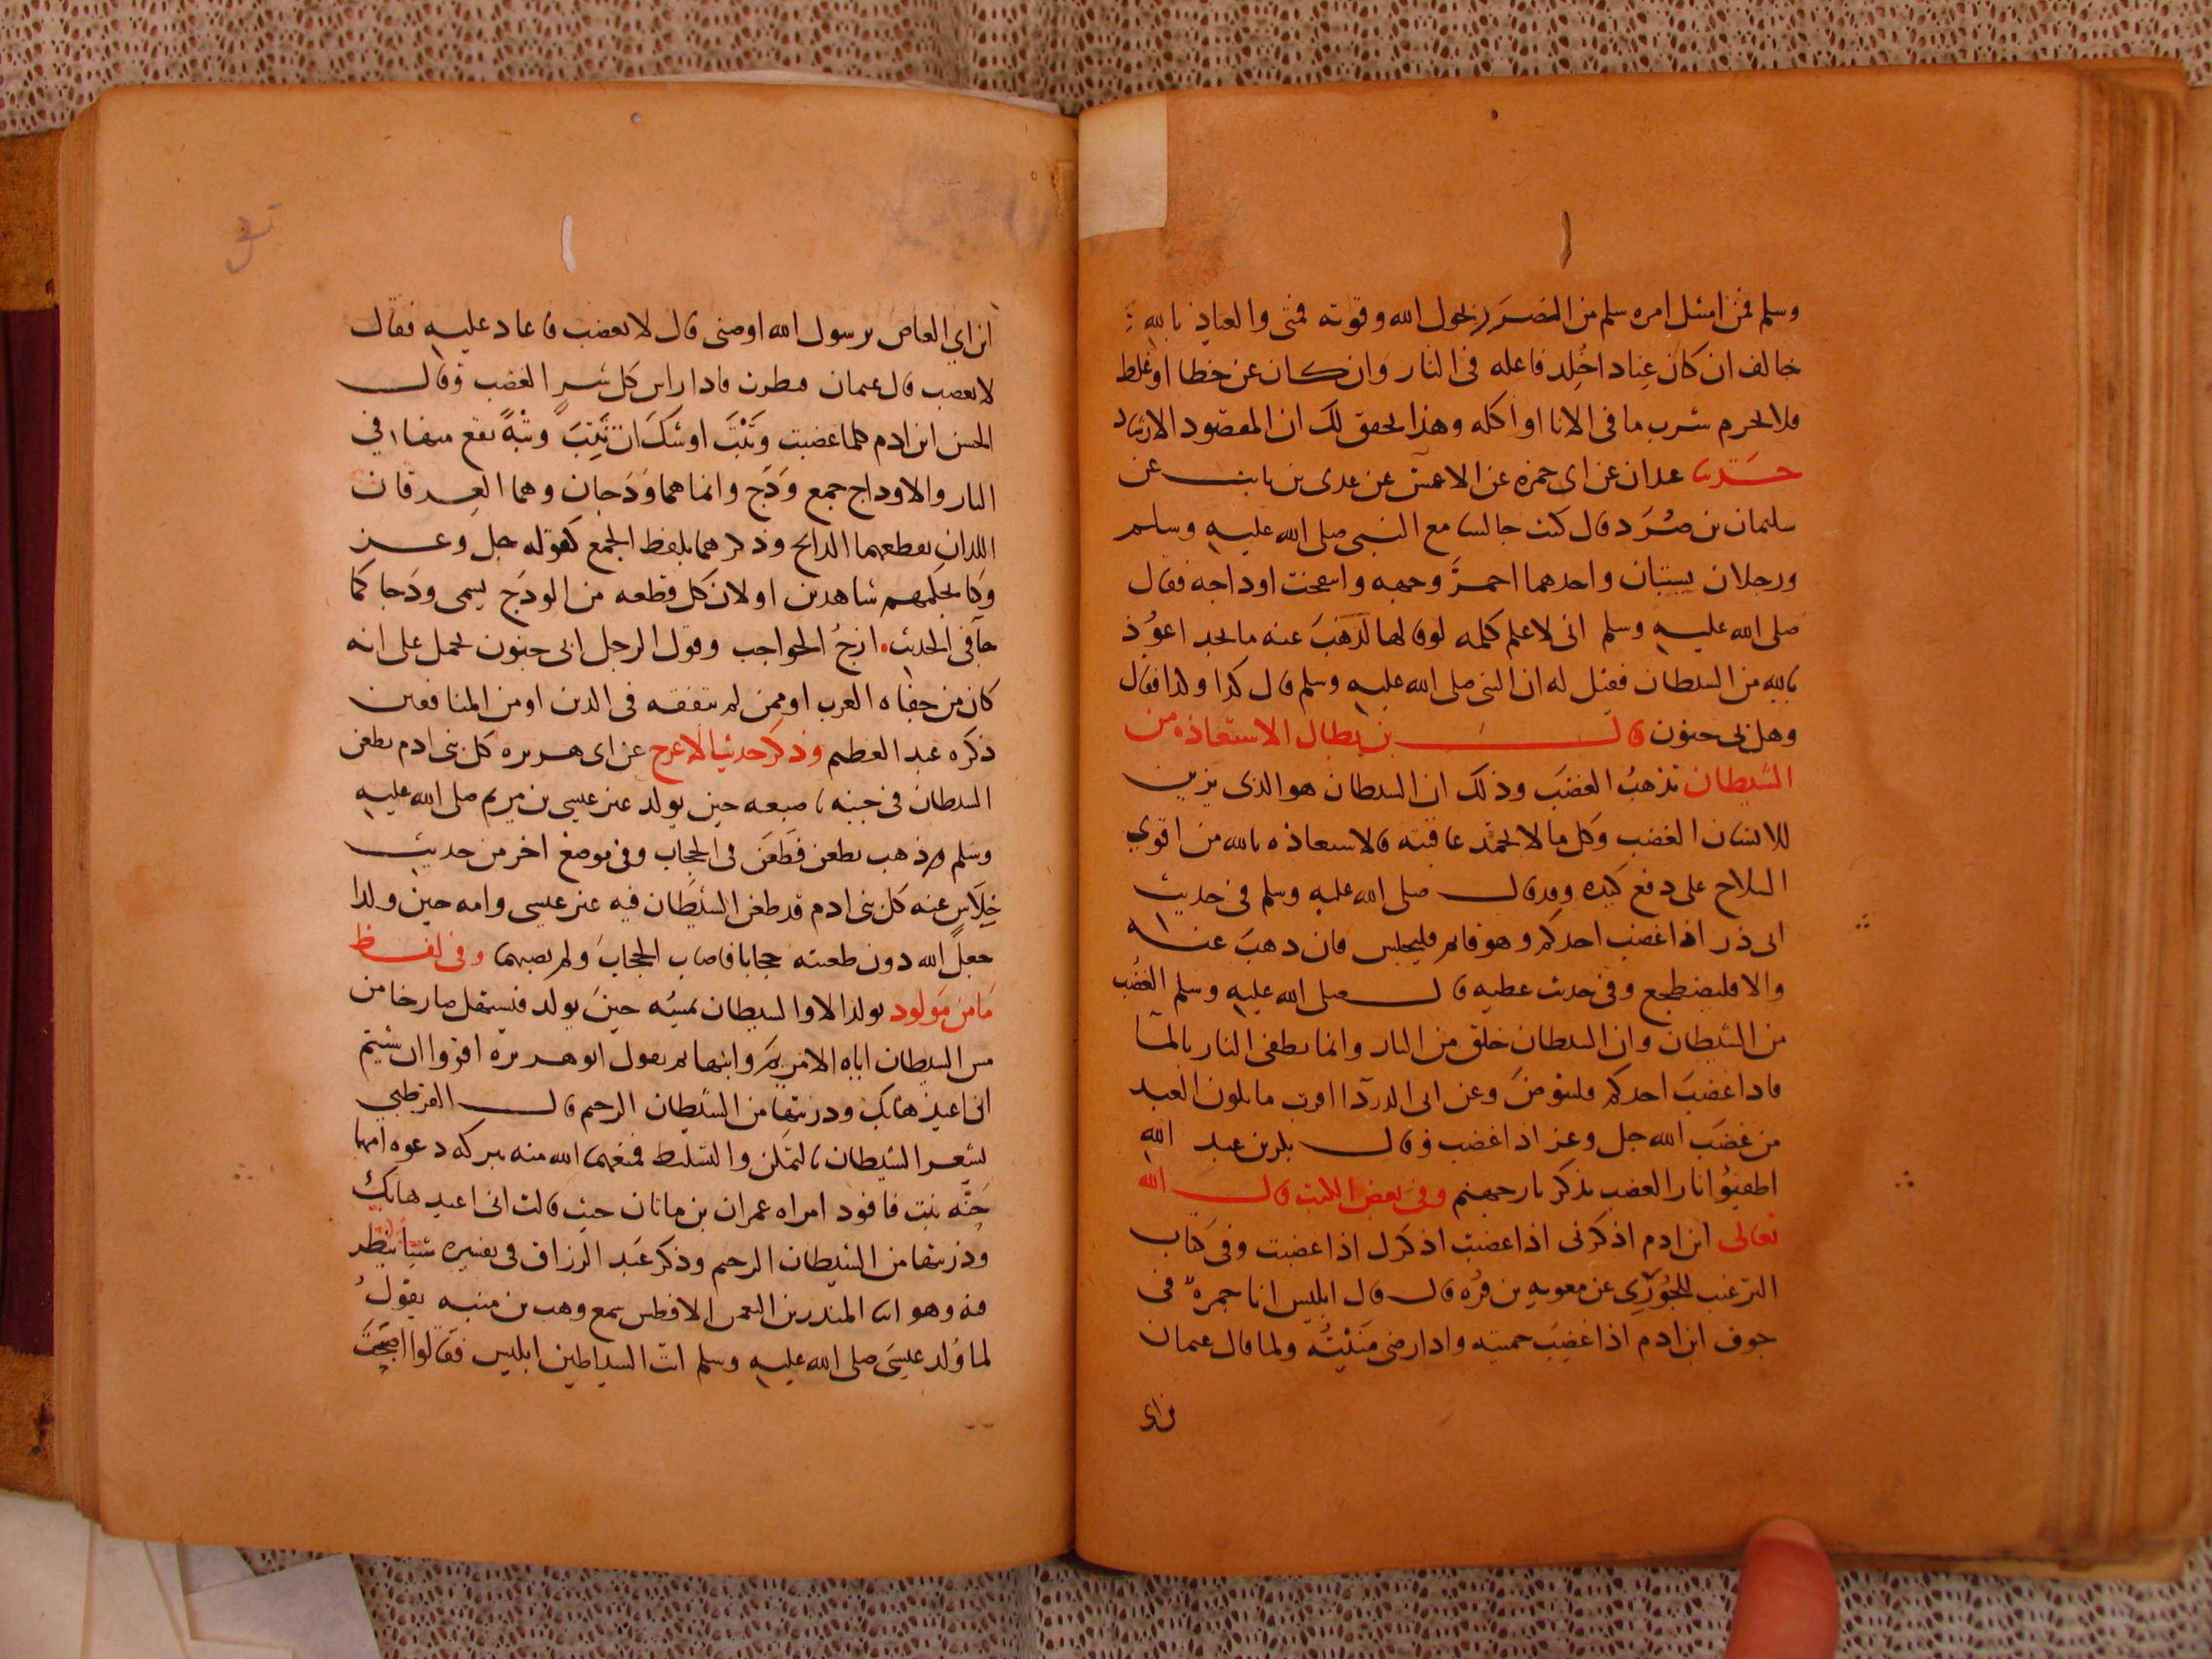 وسلم فمن امتثل امره سلم من الضرر بحول الله وقوته فمتى والعياذ بالله
خالف ان كان عنادا خلد فاعله في النار وان كان عن خطا او غلط
فلا يحرم شرب ما في الانا او اكله وهذا يحقق لك ان المقصود الارشاد
حدثنا عبدان عن ابي حمزه عن الاعمش عن عدي بن ثابت عن
سليمان بن صُرَد قال كنت جالسا مع النبي صلى الله عليه وسلم
ورجلان يستبان واحدهما احمرَّ وجهه وانتفخت اوداجه فقال
صلى الله عليه وسلم اني لاعلم كلمه لو قالها لذهَبَ عنه ما يجد اعوُذ
بالله من الشيطان فقيل له ان النبي صلى الله عليه وسلم قال كذا وكذا فقال
وهل بي جنون قال بن بطال الاستعاذه من
الشيطان تذهبُ الغضَبَ وذلك ان الشيطان هو الذي يزين
للانسان الغضب وكل ما لا تحمَد عاقبته فالاستعاذه بالله من اقوي
السلاح على دفع كيده وقد قال صلى الله عليه وسلم في حديث
ابي ذر اذا غضب احدكم وهو قائم فليجلس فان ذهبَ عنه
والا فليضطجع وفي حديث عطيه قال صلى الله عليه وسلم الغضَب
من الشيطان وان الشيطان خلق من النار وانما يطفي النار بالمآ
فاذا غضبَ احدكم فليتوضَ وعن ابي الدردآ اقرب ما يكون العبد
من غضَب الله جل وعز اذا غضب وقال بكر بن عبد الله
اطفيؤا نار الغضب بذكر نار جهنم وفي بعض الكتب قال الله
تعالى ابن ادم اذكرني اذا غضبت اذكرك اذا غضبت وفي كتاب
الترغيب للجُوزي عن معويه بن قره قال قال ابليس انا جمرة في
جوف ابن ادم اذا غضِبَ حميته واذا رضي مَنيْتُه ولما قال عثمان
بن ابي
ابن ابي العاص يرسول الله اوصني قال لا تغضب فاعاد عليه فقال
لا تغضب قال عثمان فنظرت فاذا راس كل شرٍ الغضب وقال
الحسن ابن ادم كلما غضبت وَثَبْتَ اوشَكَ ان تَثِبَ وثبةً تقع منها في
النار والاوداج جمع وَدَج وانما هما وَدَجان وهما العِرقان
اللذان يقطعهما الذابح وذكرهما بلفظ الجمع كقوله جل وعز
وكنا لحكمهم شاهدين او لان كل قطعه من الودَج يسمى ودَجا كما
جآ في الحديث ازجُ الحواجب وقول الرجل ابي جنون يحمل على انه
كان من جفاه العرب او ممن لم يتفقه في الدين او من المنافقين
ذكره عبد العظيم وذكر حديث الاعرج عن ابي هريره كل بني ادم يطعن
الشيطان في جنبه باصبعه حين يولد غير عيسى بن مريم صلى الله عليه
وسلم ذهب يطعن فَطَعَن في الحجاب وفي موضع اخر من حديث
خِلاَس عنه كل بني ادم قد طعن الشيطان فيه غير عيسى وامه حين ولدا
جعل الله دون طعنته حجابا فاصاب الحجابَ ولم يصبهما وفي لفظ
مَا من مَولود يولد الا والشيطان يمسُه حينَ يولد فيستهل صارخا من
مس الشيطان اياه الا مريم وابنها ثم يقول ابو هريره اقروا ان شيتم
اني اعيذها بك وذريتها من الشيطان الرجيم قال القرطبي
لشعر الشيطان بالتمكن والتسلط فمنعهما الله منه ببركه دعوه امها
حَنَّه بنت فاقود امراه عمران بن ماثان حيث قالت اني اعيذها بك
وذريتها من الشيطان الرجيم وذكر عَبد الرزاق في تفسيره شيا ينظر
فيه وهو انا المنذر بن النعمن الافطس سمع وهب بن منبه يقولُ
لما وُلد عيسَى صلى الله عليه وسلم اتت الشياطين ابليس فقَالوا اصبحَتَ